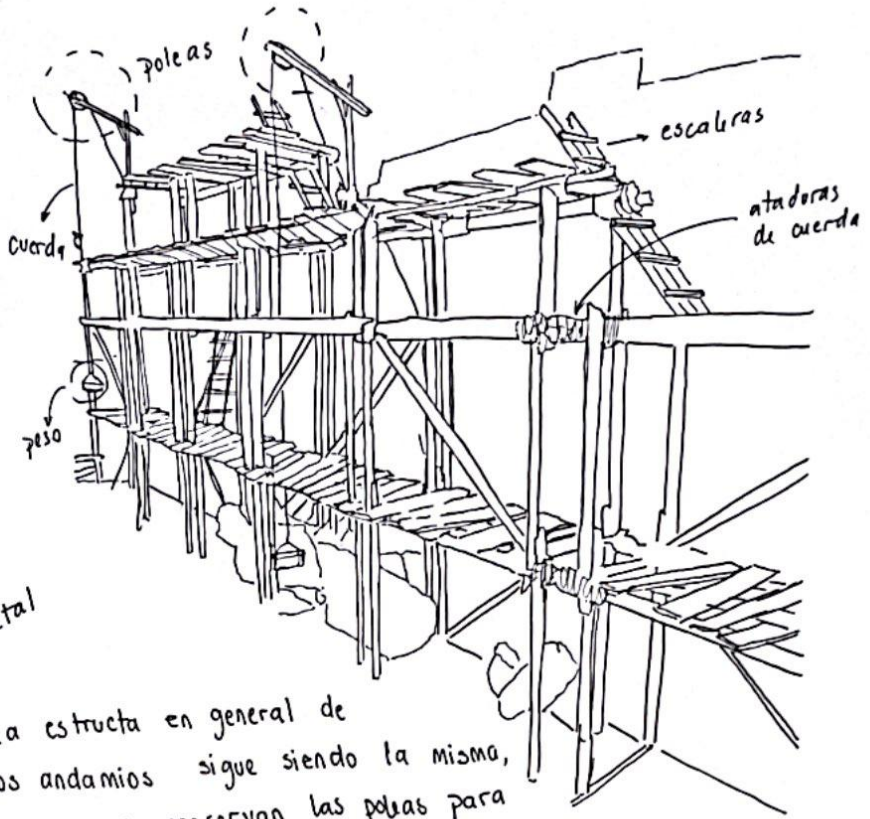 poleas
escaleras
cuerda
ataduras
de cuerda
peso
tal
a estructa en general de
os andamios sigue siendo la misma,
servan las poleas para